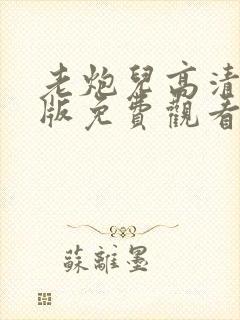 老炮兒高清
版免費觀看
蘇離墨